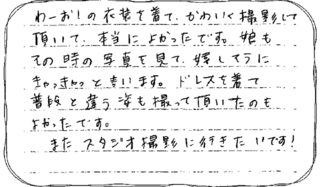 わーお!の衣装を着て、かわいく撮影して
頂いて、本当によかったです。娘も
その時の写真を見て、嬉しそうに
きゃっきゃっと言います。ドレスを着て
普段と違う姿も撮って頂いたのも
よかったです。
また スタジオ撮影に行きたいです!